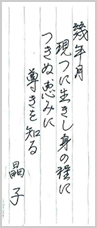 幾年月
現つに生きし身の程に
つきぬ恵みに
尊きを知る
晶子